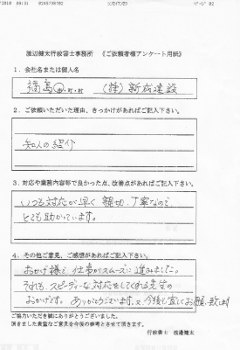 渡辺健太行政書士事務所 《ご依頼者様アンケート用紙》
1．会社名または個人名
福島 市・町・村 (株) 新柏建設
2．ご依頼いただいた理由、きっかけがあればご記入下さい。
知人の紹介
3．対応や業務内容部で良かった点、改善点があればご記入下さい。
いつも対応が早く親切、丁寧なので
とても助かっています。
4．その他ご意見、ご感想があればご記入下さい。
おかげ様で、仕事がスムーズに進みました。
それも、スピーディーな対応をしてくれる先生の
おかげです。ありがとうございます。今後も宜しくお願い致します
ご協力ありがとうございました。
頂きました貴重なご意見を今後の参考とさせて頂きます。
行政書士 渡邊健太